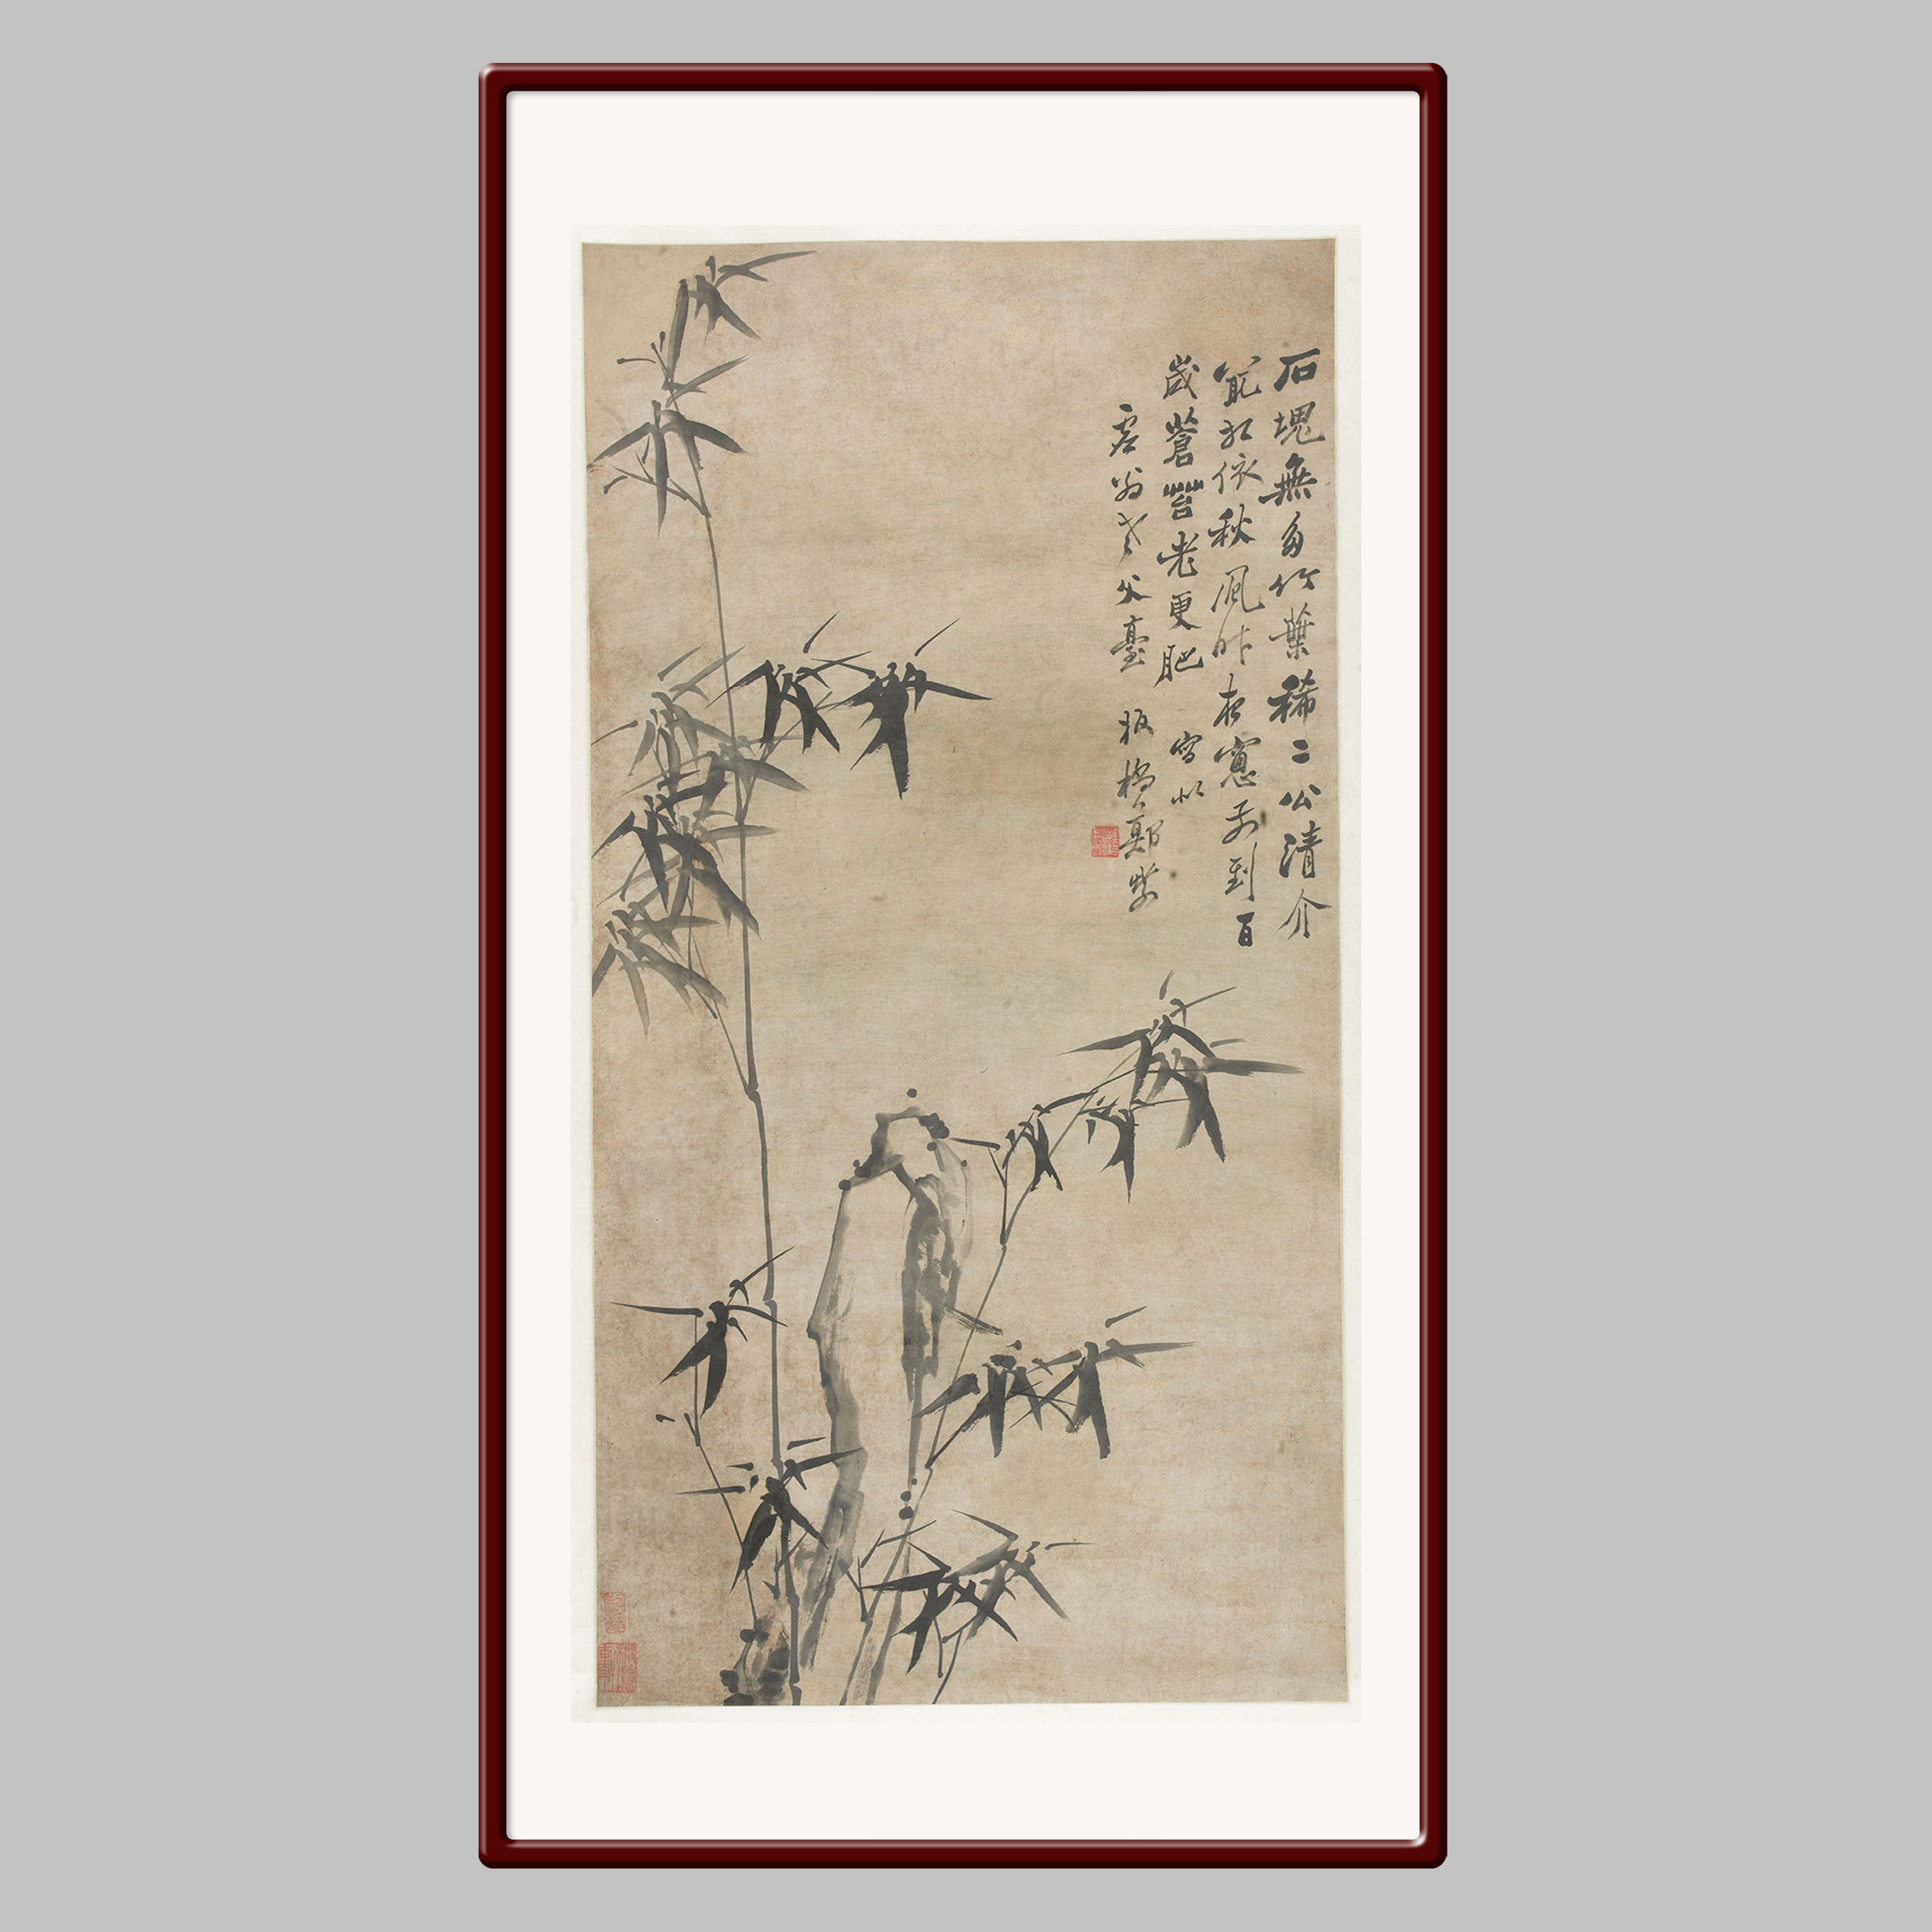 石塊無多竹葉稀二公清介
能相依秋風昨夜窓前到百
歲蒼苔老更肥 寫似
虛翁老父臺 板橋鄭燮